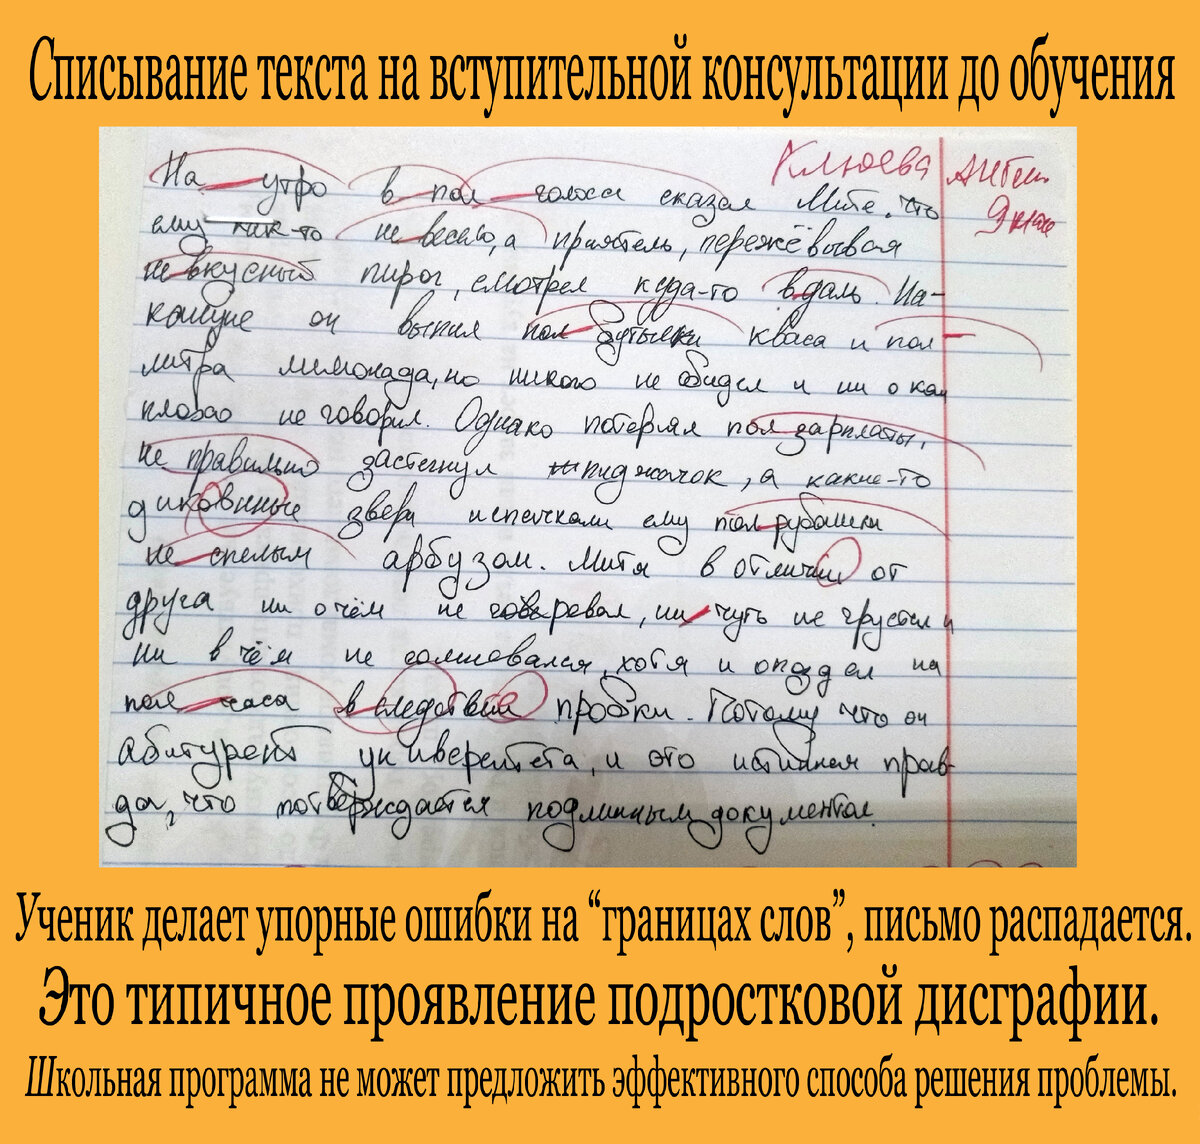 Списывание текста на вступительной консультации до обучения
Клюева
9 кл
На утро в пол голоса сказал Мите, что
ему как-то не весело, а приятель, пережёвывая
не вкусный пирог, смотрел куда-то в даль. На-
кануне он выпил пол бутылки кваса и пол
литра лимонада, но никого не обидел и ни о ком
плохо не говорил. Однако потерял пол зарплаты,
не правильно застегнул пиджачок, а какие-то
диковинные звери испачкали ему пол рубашки
не спелым арбузом. Митя в отличии от
друга ни о чём не горевал, ни чуть не грустил и
ни в чём не сомневался, хотя и опоздал на
пол часа в следствии пробки. Потому что он
абитурент университета, и это истинная прав-
да, что потверждается подлинным документом.
Ученик делает упорные ошибки на “границах слов”, письмо распадается.
Это типичное проявление подростковой дисграфии.
Школьная программа не может предложить эффективного способа решения проблемы.